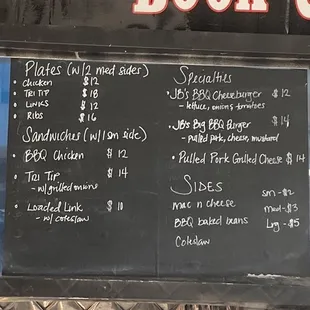 BOOK
Plates (w/2 med sides)
• Chicken $12
• Tri Tip $18
• Links $12
• Ribs $16
Sandwiches (w/1 sm side)
• BBQ Chicken $12
• Tri Tip $14
- w/grilled onions
• Loaded Link $10
- w/coleslaw
Specialties
• JB's BBQ Cheeseburger $12
- lettuce, onions, tomatoes
• JB's Big BBQ Burger $14
- pulled pork, cheese, mustard
• Pulled Pork Grilled Cheese $14
SIDES
mac n cheese
BBQ baked beans
Coleslaw
sm - $2
med - $3
Lrg - $5